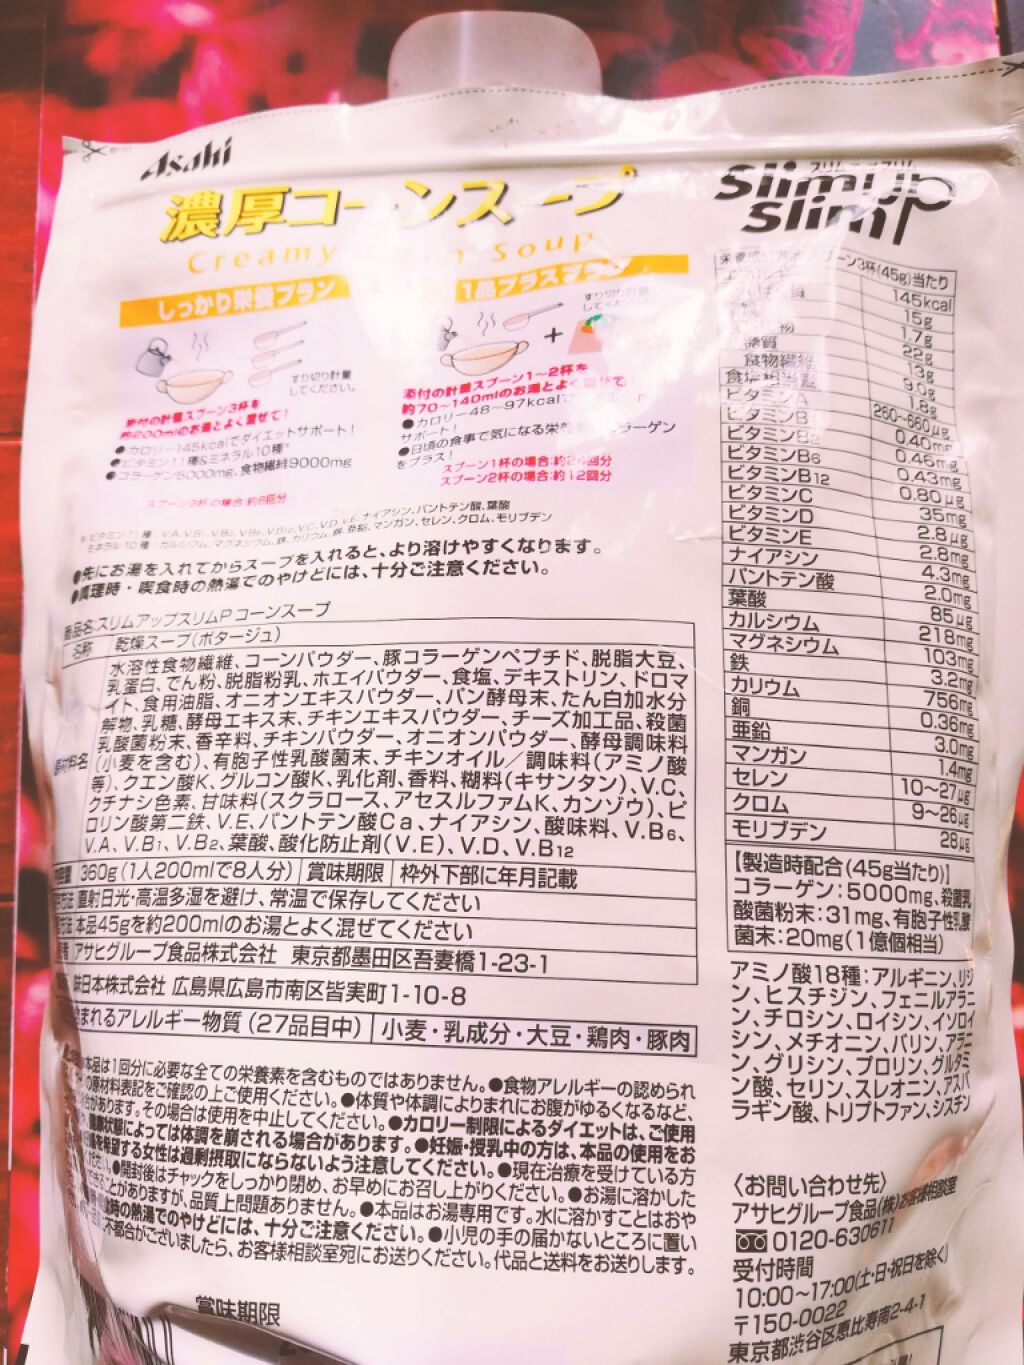 Asahi
濃厚コーンスープ
Creamy Corn Soup
スリムアップスリム
Slimup
slim
しっかり栄養プラン
すり切り計量
してください。
添付の計量スプーン3杯を
約200mlのお湯とよく混ぜて!
●カロリー145kcalでダイエットサポート!
●ビタミン11種&ミネラル10種*
●コラーゲン5000mg、食物繊維9000mg
スプーン3杯の場合:約8回分
1品プラスプラン
+
添付の計量スプーン1〜2杯を
約70〜140mlのお湯とよく混ぜて
●カロリー48〜97kcalでダイエット
サポート!
●日頃の食事で気になる栄養 コラーゲン
をプラス!
スプーン1杯の場合:約24回分
スプーン2杯の場合:約12回分
*ビタミン11種:V.A、V.B1、V.B2、V.B6、V.B12、V.C、V.D、V.E、ナイアシン、パントテン酸、葉酸
ミネラル10種:カルシウム、マグネシウム、鉄、カリウム、銅、亜鉛、マンガン、セレン、クロム、モリブデン
●先にお湯を入れてからスープを入れると、より溶けやすくなります。
●調理時・喫食時の熱湯でのやけどには、十分ご注意ください。
商品名:スリムアップスリムP コーンスープ
名称 乾燥スープ(ポタージュ)
原材料名
水溶性食物繊維、コーンパウダー、豚コラーゲンペプチド、脱脂大豆、
乳蛋白、でん粉、脱脂粉乳、ホエイパウダー、食塩、デキストリン、ドロマ
イト、食用油脂、オニオンエキスパウダー、パン酵母末、たん白加水分
解物、乳糖、酵母エキス末、チキンエキスパウダー、チーズ加工品、殺菌
乳酸菌粉末、香辛料、チキンパウダー、オニオンパウダー、酵母調味料
(小麦を含む)、有胞子性乳酸菌末、チキンオイル/調味料(アミノ酸
等)、クエン酸K、グルコン酸K、乳化剤、香料、糊料(キサンタン)、V.C、
クチナシ色素、甘味料(スクラロース、アセスルファムK、カンゾウ)、ピ
ロリン酸第二鉄、V.E、パントテン酸Ca、ナイアシン、酸味料、V.B6、
V.A、V.B1、V.B2、葉酸、酸化防止剤(V.E)、V.D、V.B12
360g(1人200mlで8人分) 賞味期限 枠外下部に年月記載
直射日光・高温多湿を避け、常温で保存してください
本品45gを約200mlのお湯とよく混ぜてください
アサヒグループ食品株式会社 東京都墨田区吾妻橋1-23-1
味日本株式会社 広島県広島市南区皆実町1-10-8
含まれるアレルギー物質(27品目中) 小麦・乳成分・大豆・鶏肉・豚肉
本品は1回分に必要な全ての栄養素を含むものではありません。●食物アレルギーの認められ
の原材料表記をご確認の上ご使用ください。●体質や体調によりまれにお腹がゆるくなるなど、
合があります。その場合は使用を中止してください。●カロリー制限によるダイエットは、ご使用
健康状態によっては体調を崩される場合があります。●妊娠・授乳中の方は、本品の使用をお
を希望する女性は過剰摂取にならないよう注意してください。●現在治療を受けている方
ださい。●開封後はチャックをしっかり閉め、お早めにお召し上がりください。●お湯に溶かした
ことがありますが、品質上問題ありません。●本品はお湯専用です。水に溶かすことはおや
時の熱湯でのやけどには、十分ご注意ください。●小児の手の届かないところに置い
不都合がございましたら、お客様相談室宛にお送りください。代品と送料をお送りします。
賞味期限
スプーン3杯(45g)当たり
145kcal
15g
1.7g
22g
糖質 13g
食物繊維 9.0g
食塩相当量 1.8g
ビタミンA 260〜660μg
ビタミンB1 0.40mg
ビタミンB2 0.46mg
ビタミンB6 0.43mg
ビタミンB12 0.80μg
ビタミンC 35mg
ビタミンD 2.8μg
ビタミンE 2.8mg
ナイアシン 4.3mg
パントテン酸 2.0mg
葉酸 85μg
カルシウム 218mg
マグネシウム 103mg
鉄 3.2mg
カリウム 756mg
銅 0.36mg
亜鉛 3.0mg
マンガン 1.4mg
セレン 10〜27μg
クロム 9〜26μg
モリブデン 28μg
【製造時配合(45g当たり)】
コラーゲン:5000mg、殺菌乳
酸菌粉末:31mg、有胞子性乳酸
菌末:20mg(1億個相当)
アミノ酸18種:アルギニン、リジ
ン、ヒスチジン、フェニルアラニ
ン、チロシン、ロイシン、イソロイ
シン、メチオニン、バリン、アラニ
ン、グリシン、プロリン、グルタミ
ン酸、セリン、スレオニン、アスパ
ラギン酸、トリプトファン、シスチン
〈お問い合わせ先〉
アサヒグループ食品(株)お客様相談室
0120-630611
受付時間
10:00〜17:00(土・日・祝日を除く)
〒150-0022
東京都渋谷区恵比寿南2-4-1